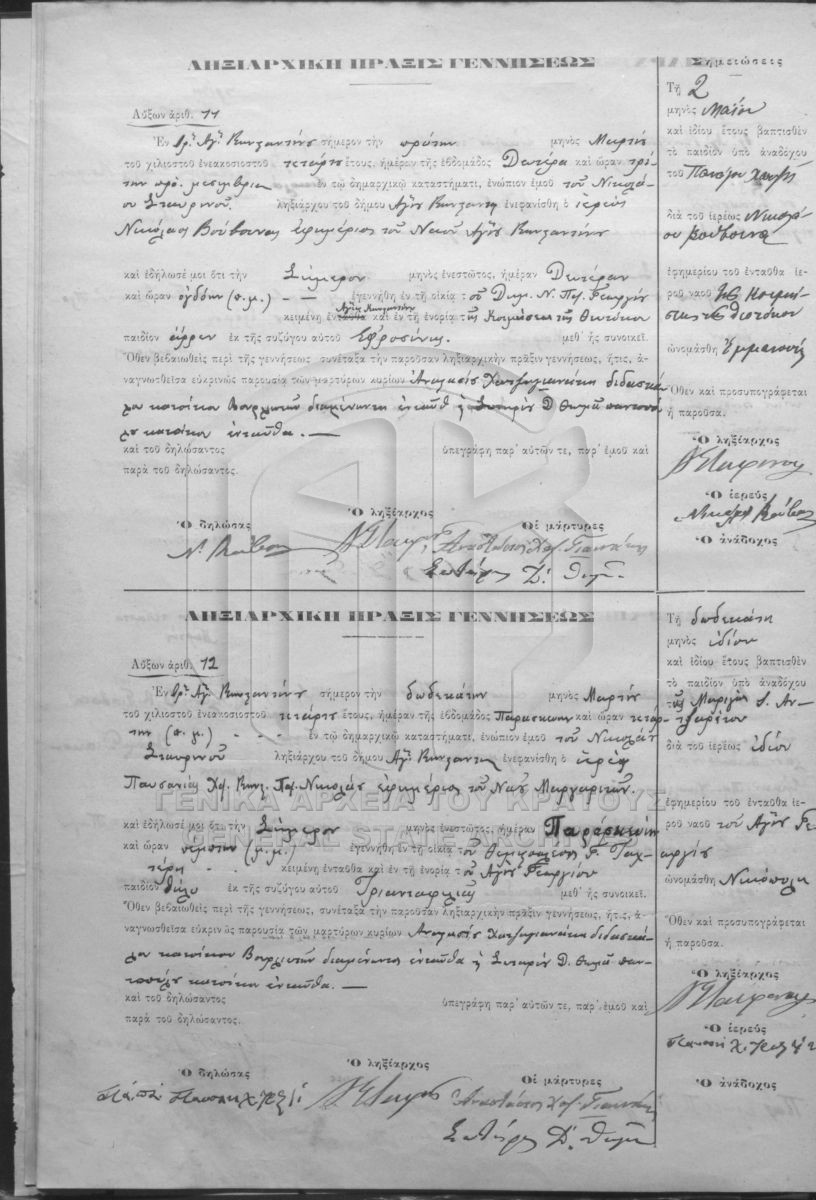 ΛΗΞΙΑΡΧΙΚΗ ΠΡΑΞΙΣ ΓΕΝΝΗΣΕΩΣ
Αὔξων ἀριθ. 11
Ἐν Βρ. Ἁγ. Κωνσταντῖνος σήμερον τὴν πρώτην μηνὸς Μαρτίου
τοῦ χιλιοστοῦ ἐνεακοσιοστοῦ τετάρτου ἔτους, ἡμέραν τῆς ἑβδομάδος Δευτέρα καὶ ὥραν τρί-
την πρό μεσημβρίας ἐν τῷ δημαρχικῷ καταστήματι, ἐνώπιον ἐμοῦ τοῦ Νικολά-
ου Σταυρινοῦ ληξιάρχου τοῦ δήμου Ἁγίου Κωνσταντίνου ἐνεφανίσθη ὁ ἱερεὺς
Νικόλαος Βούβουνας ἐφημέριος τοῦ Ναοῦ Ἁγίου Κωνσταντίνου
καὶ ἐδήλωσέ μοι ὅτι τὴν Σήμερον μηνὸς ἐνεστῶτος, ἡμέραν Δευτέραν
καὶ ὥραν ὀγδόην (π.μ.) – – ἐγεννήθη ἐν τῇ οἰκίᾳ τοῦ Δημ. Ν. Πα. Γεωργίου
Ἁγίῳ Κωνσταντίνῳ
κειμένῃ ἐνταῦθα καὶ ἐν τῇ ἐνορίᾳ τῆς Κοιμήσεως τῆς Θεοτόκου
παιδίον ἄρρεν ἐκ τῆς συζύγου αὐτοῦ Εὐφροσύνης μεθ᾽ ἧς συνοικεῖ.
Ὅθεν βεβαιωθεὶς περὶ τῆς γεννήσεως συνέταξα τὴν παροῦσαν ληξιαρχικὴν πρᾶξιν γεννήσεως, ἥτις, ἀ-
ναγνωσθεῖσα εὐκρινῶς παρουσίᾳ τῶν μαρτύρων κυρίων Ἀναστασίου Χατζηγιαννάκη διδασκά-
λου κατοίκου Βουρλιωτῶν διαμένοντος ἐνταῦθα ἢ Σωτηρίου Δ. Θωμᾶ παντοπώ-
λου κατοίκου ἐνταῦθα. —
καὶ τοῦ δηλώσαντος ὑπεγράφη παρ᾽ αὐτῶν τε, παρ᾽ ἐμοῦ καὶ
παρὰ τοῦ δηλώσαντος.
Ὁ δηλώσας Ὁ ληξίαρχος Οἱ μάρτυρες
Ν. Βούβου Ν Σταυρινοῦ Ἀναστάσιος Χατ. Γιαννάκης
Σωτήριος Δ. Θωμᾶ
Σημειώσεις
Τῇ 2
μηνὸς Μαΐου
καὶ ἰδίου ἔτους βαπτισθὲν
τὸ παιδίον ὑπὸ ἀναδόχου
τοῦ
διὰ τοῦ ἱερέως Νικολά-
ου Βούβουνα
ἐφημερίου τοῦ ἐνταῦθα ἱε-
ροῦ ναοῦ τῆς Κοιμή-
σεως τῆς Θεοτόκου
ὠνομάσθη Ἐμμανουήλ
Ὅθεν καὶ προσυπογράφεται
ἡ παροῦσα.
Ὁ ληξίαρχος
Ν Σταυρινοῦ
Ὁ ἱερεὺς
Νικόλαος Βούβου
Ὁ ἀνάδοχος
ΛΗΞΙΑΡΧΙΚΗ ΠΡΑΞΙΣ ΓΕΝΝΗΣΕΩΣ
Αὔξων ἀριθ. 12
Ἐν Βρ. Ἁγ. Κωνσταντῖνος σήμερον τὴν δωδεκάτην μηνὸς Μαρτίου
τοῦ χιλιοστοῦ ἐνεακοσιοστοῦ τετάρτου ἔτους, ἡμέραν τῆς ἑβδομάδος Παρασκευὴν καὶ ὥραν τετάρ-
την (π.μ.) - - - ἐν τῷ δημαρχικῷ καταστήματι, ἐνώπιον ἐμοῦ τοῦ Νικολάου
Σταυρινοῦ ληξιάρχου τοῦ δήμου Ἁγ. Κωνσταντίνου ἐνεφανίσθη ὁ ἱερεὺς
Παυσανίας Χα. Κωνσ. Πα. Νικολάου ἐφημέριος τοῦ Ναοῦ Μαργαριτῶν.
καὶ ἐδήλωσέ μοι ὅτι τὴν Σήμερον μηνὸς ἐνεστῶτος, ἡμέραν Παρασκευὴν
καὶ ὥραν πέμπτην (μ.μ.) ἐγεννήθη ἐν τῇ οἰκίᾳ τοῦ Θεμιστοκλέους Γ. Ταχ-
τέρη - - κειμένῃ ἐνταῦθα καὶ ἐν τῇ ἐνορίᾳ τοῦ Ἁγίου Γεωργίου
παιδίον θῆλυ ἐκ τῆς συζύγου αὐτοῦ Τριανταφυλλιᾶς μεθ᾽ ἧς συνοικεῖ.
Ὅθεν βεβαιωθεὶς περὶ τῆς γεννήσεως, συνέταξα τὴν παροῦσαν ληξιαρχικὴν πρᾶξιν γεννήσεως, ἥτις, ἀ-
ναγνωσθεῖσα εὐκρινῶς παρουσίᾳ τῶν μαρτύρων κυρίων Ἀναστασίου Χατζηγιαννάκη διδασκά-
λου κατοίκου Βουρλιωτῶν διαμένοντος ἐνταῦθα ἢ Σωτηρίου Δ. Θωμᾶ παν-
τοπώλου κατοίκου ἐνταῦθα. —
καὶ τοῦ δηλώσαντος ὑπεγράφη παρ᾽ αὐτῶν τε, παρ᾽ ἐμοῦ καὶ
παρὰ τοῦ δηλώσαντος.
Ὁ δηλώσας Ὁ ληξίαρχος Οἱ μάρτυρες
Ν Σταυρινοῦ Ἀναστάσιος Χατ. Γιαννάκης
Σωτήριος Δ. Θωμᾶ
Τῇ δωδεκάτῃ
μηνὸς ἰδίου
καὶ ἰδίου ἔτους βαπτισθὲν
τὸ παιδίον ὑπὸ ἀναδόχου
τῆς Μαριγῶς
διὰ τοῦ ἱερέως ἰδίου
ἐφημερίου τοῦ ἐνταῦθα ἱε-
ροῦ ναοῦ τοῦ Ἁγίου Γε-
ωργίου
ὠνομάσθη Νικόπολη
Ὅθεν καὶ προσυπογράφεται
ἡ παροῦσα.
Ὁ ληξίαρχος
Ν Σταυρινοῦ
Ὁ ἱερεὺς
Ὁ ἀνάδοχος
ΓΕΝΙΚΑ ΑΡΧΕΙΑ ΤΟΥ ΚΡΑΤΟΥΣ
GENERAL STATE ARCHIVES